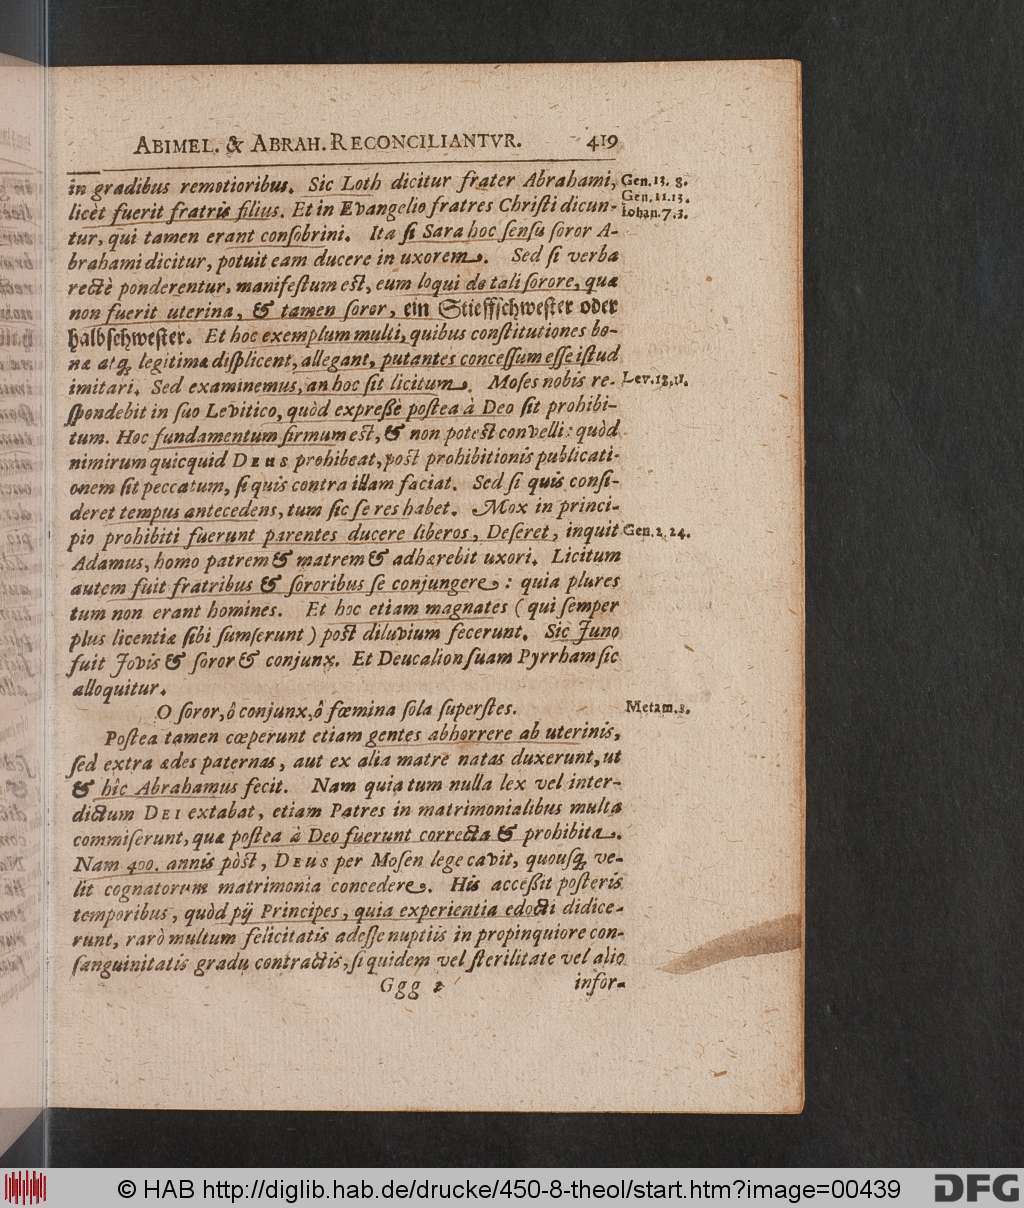 ABIMEL. & ABRAH. RECONCILIANTVR. 419
in gradibus remotioribus. Sic Loth dicitur frater Abrahami, Gen. 13. 8.
licèt fuerit fratris filius. Et in Evangelio fratres Christi dicun- Gen. 11. 13.
Iohan. 7. 3.
tur, qui tamen erant consobrini. Ita si Sara hoc sensu soror A-
brahami dicitur, potuit eam ducere in uxorem. Sed si verba
rectè ponderentur, manifestum est, eum loqui de tali sorore, quæ
non fuerit uterina, & tamen soror, ein Stieffschwester oder
halbschwester. Et hoc exemplum multi, quibus constitutiones bo-
næ atq; legitimæ displicent, allegant, putantes concessum esse istud
imitari. Sed examinemus, an hoc sit licitum. Moses nobis re- Lev. 18. 11.
spondebit in suo Levitico, quòd expressè postea à Deo sit prohibi-
tum. Hoc fundamentum firmum est, & non potest convelli: quòd
nimirum quicquid DEUS prohibeat, post prohibitionis publicati-
onem sit peccatum, si quis contra illam faciat. Sed si quis consi-
deret tempus antecedens, tum sic se res habet. Mox in princi-
pio prohibiti fuerunt parentes ducere liberos, Deseret, inquit Gen. 2. 24.
Adamus, homo patrem & matrem & adhærebit uxori. Licitum
autem fuit fratribus & sororibus se conjungere: quia plures
tum non erant homines. Et hoc etiam magnates (qui semper
plus licentiæ sibi sumserunt) post diluvium fecerunt. Sic Juno
fuit Jovis & soror & conjunx. Et Deucalion suam Pyrrham sic
alloquitur.
O soror, ô conjunx, ô fœmina sola superstes. Metam. 1.
Postea tamen cœperunt etiam gentes abhorrere ab uterinis,
sed extra ædes paternas, aut ex alia matre natas duxerunt, ut
& hîc Abrahamus fecit. Nam quia tum nulla lex vel inter-
dictum DEI extabat, etiam Patres in matrimonialibus multa
commiserunt, quæ postea à Deo fuerunt correcta & prohibita.
Nam 400. annis pòst, DEUS per Mosen lege cavit, quousq; ve-
lit cognatorum matrimonia concedere. His accessit posteris
temporibus, quòd pij Principes, quia experientia edocti didice-
runt, rarò multum felicitatis adesse nuptiis in propinquiore con-
sanguinitatis gradu contractis, si quidem vel sterilitate vel alio
Ggg 2 infor-
© HAB http://diglib.hab.de/drucke/450-8-theol/start.htm?image=00439 DFG